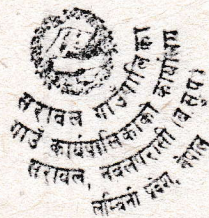 सरावल गाउँपालिका
गाउँ कार्यपालिकाको कार्यालय
सरावल, नवलपरासी ब.सु.प.
लुम्बिनी प्रदेश, नेपाल